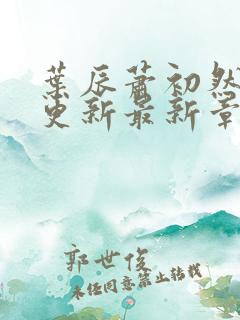 葉辰蕭初然
更新最新章
郭世俊
未經同意禁止轉載